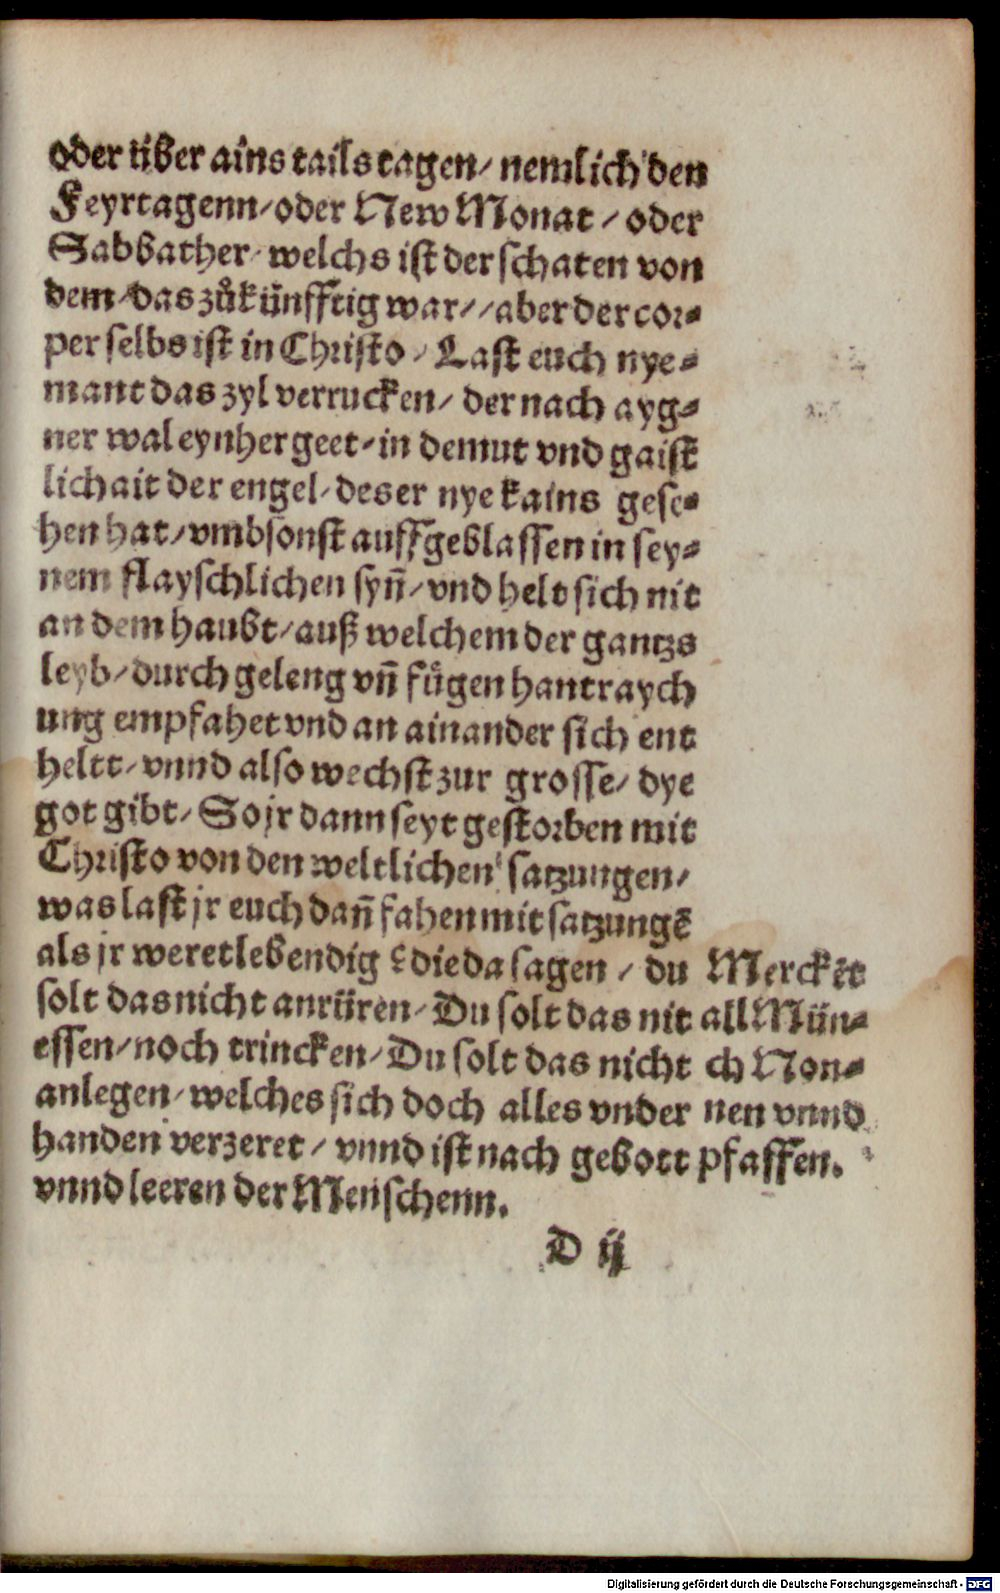 oder über ains tails tagen/ nemlich den
Feyrtagenn/oder New Monat / oder
Sabbather/ welchs ist der schaten von
dem/das zůkünfftig war//aber der cor⸗
per selbs ist in Christo / Last euch nye⸗
mant das zyl verrucken/ der nach ayg⸗
ner wal eynher geet/in demut vnd gaist
lichait der engel/ des er nye kains gese⸗
hen hat/vmbsonst auffgeblassen in sey⸗
nem flayschlichen syñ/vnd helt sich nit
an dem haubt/auß welchem der gantzs
leyb/durch geleng vñ fůgen hantraych
ung empfahet vnd an ainander sich ent
heltt/vnnd also wechst zur grosse/ dye
got gibt/ So jr dann seyt gestorben mit
Christo von den weltlichen satzungen/
was last jr euch dañ fahen mit satzungē
als jr weret lebendig ? die da sagen / du
solt das nicht anrüren/Du solt das nit
essen/noch trincken/Du solt das nicht
anlegen/welches sich doch alles vnder
handen verzeret / vnnd ist nach gebott
vnnd leeren der Menschenn.
Merckēt
all Mün⸗
ch Non⸗
nen vnnd
pfaffen.
D ij
Digitalisierung gefördert durch die Deutsche Forschungsgemeinschaft - DFG